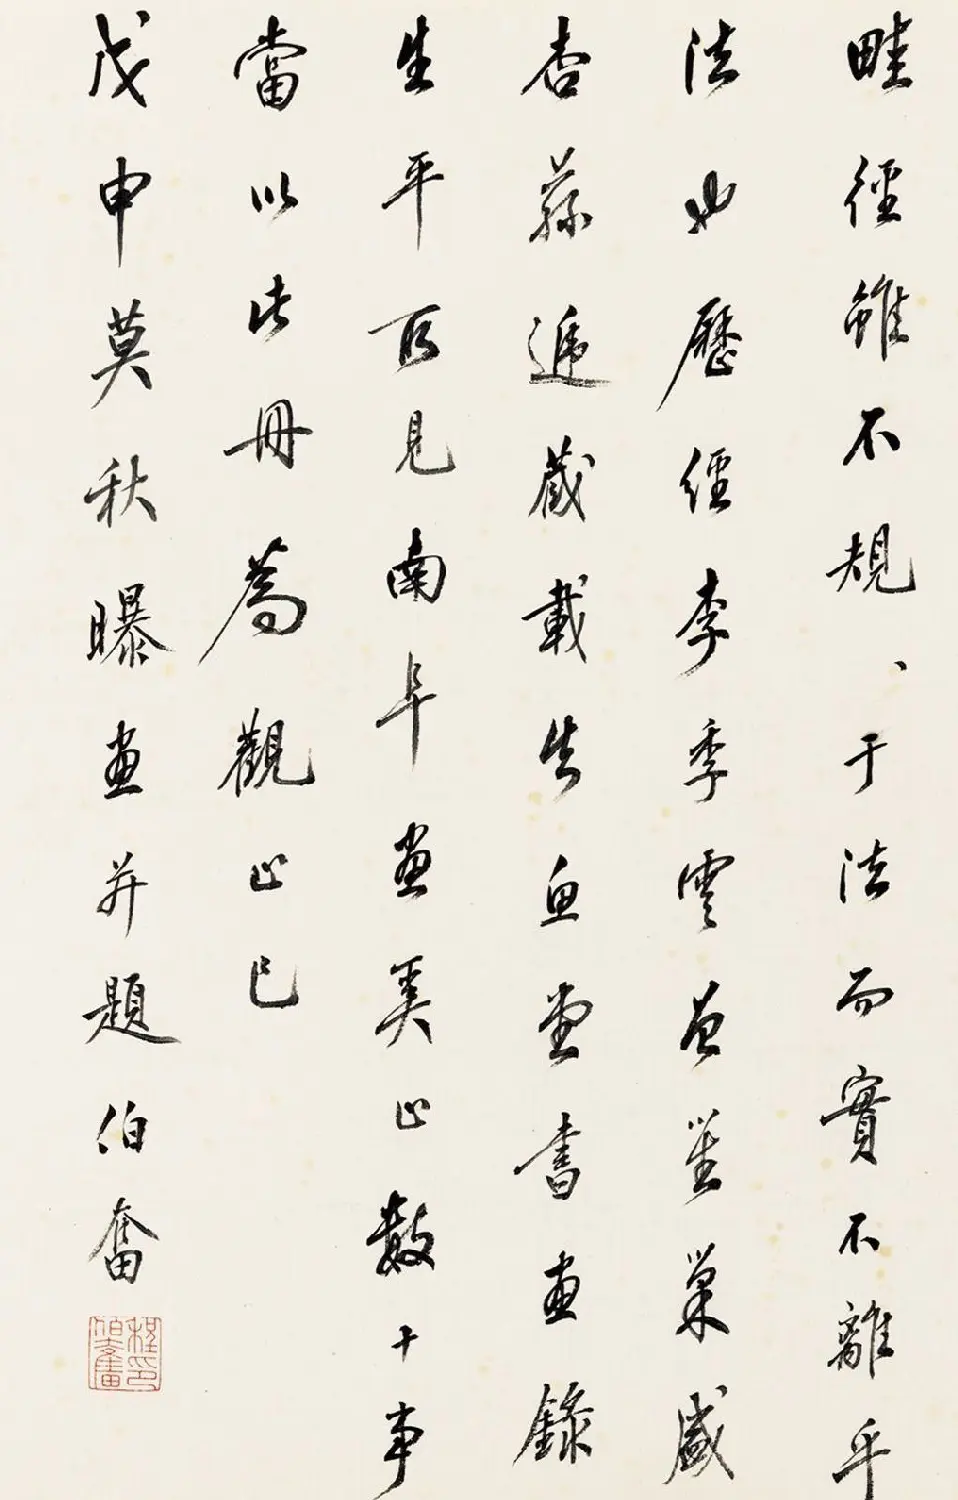 畦徑雖不規、于法而實不離乎
法也歷經李季雲曾笙巢盛
杏蓀遞藏載堂書畫錄
生平所見南阜畫奚止數十事
當以此冊為觀止已
戊申莫秋曝畫并題伯奮
程印伯奮